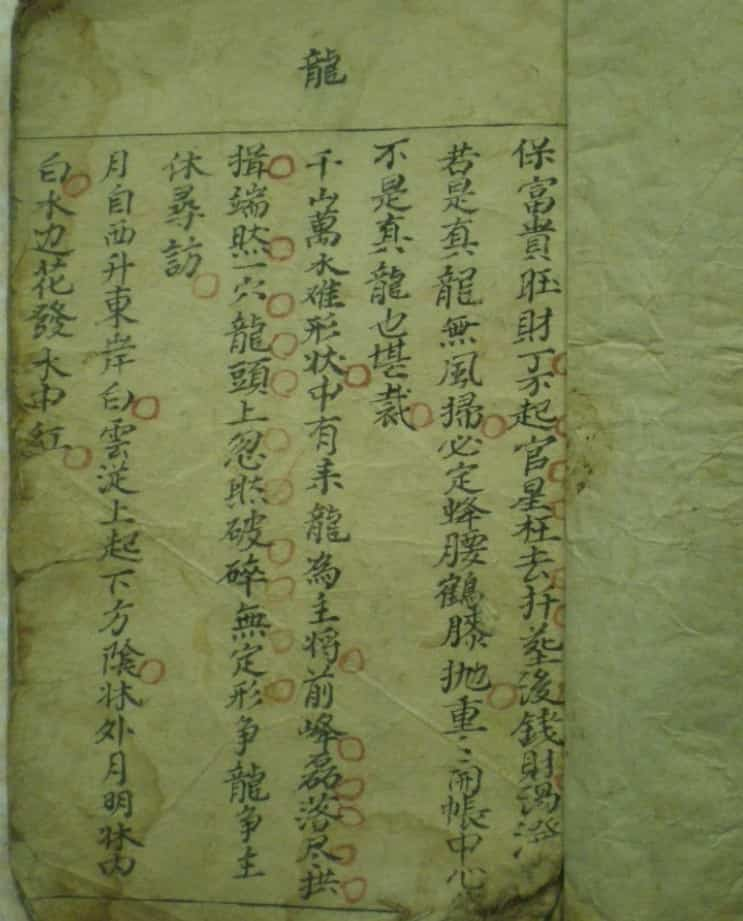 龍
保富貴旺財丁不起官星枉去扦塟後錢財潟澄
若是真龍無風掃必定蜂腰鶴膝抛重〻開帳中心
不是真龍也堪裁
千山萬水难形狀中有系龍為主將前峰磊落尽拱
揖端然一穴龍頭上忽然破碎無定形争龍争主
休尋訪
月自西升東岸白雲從上起下方陰牀外月明牀內
白水边花發水中紅